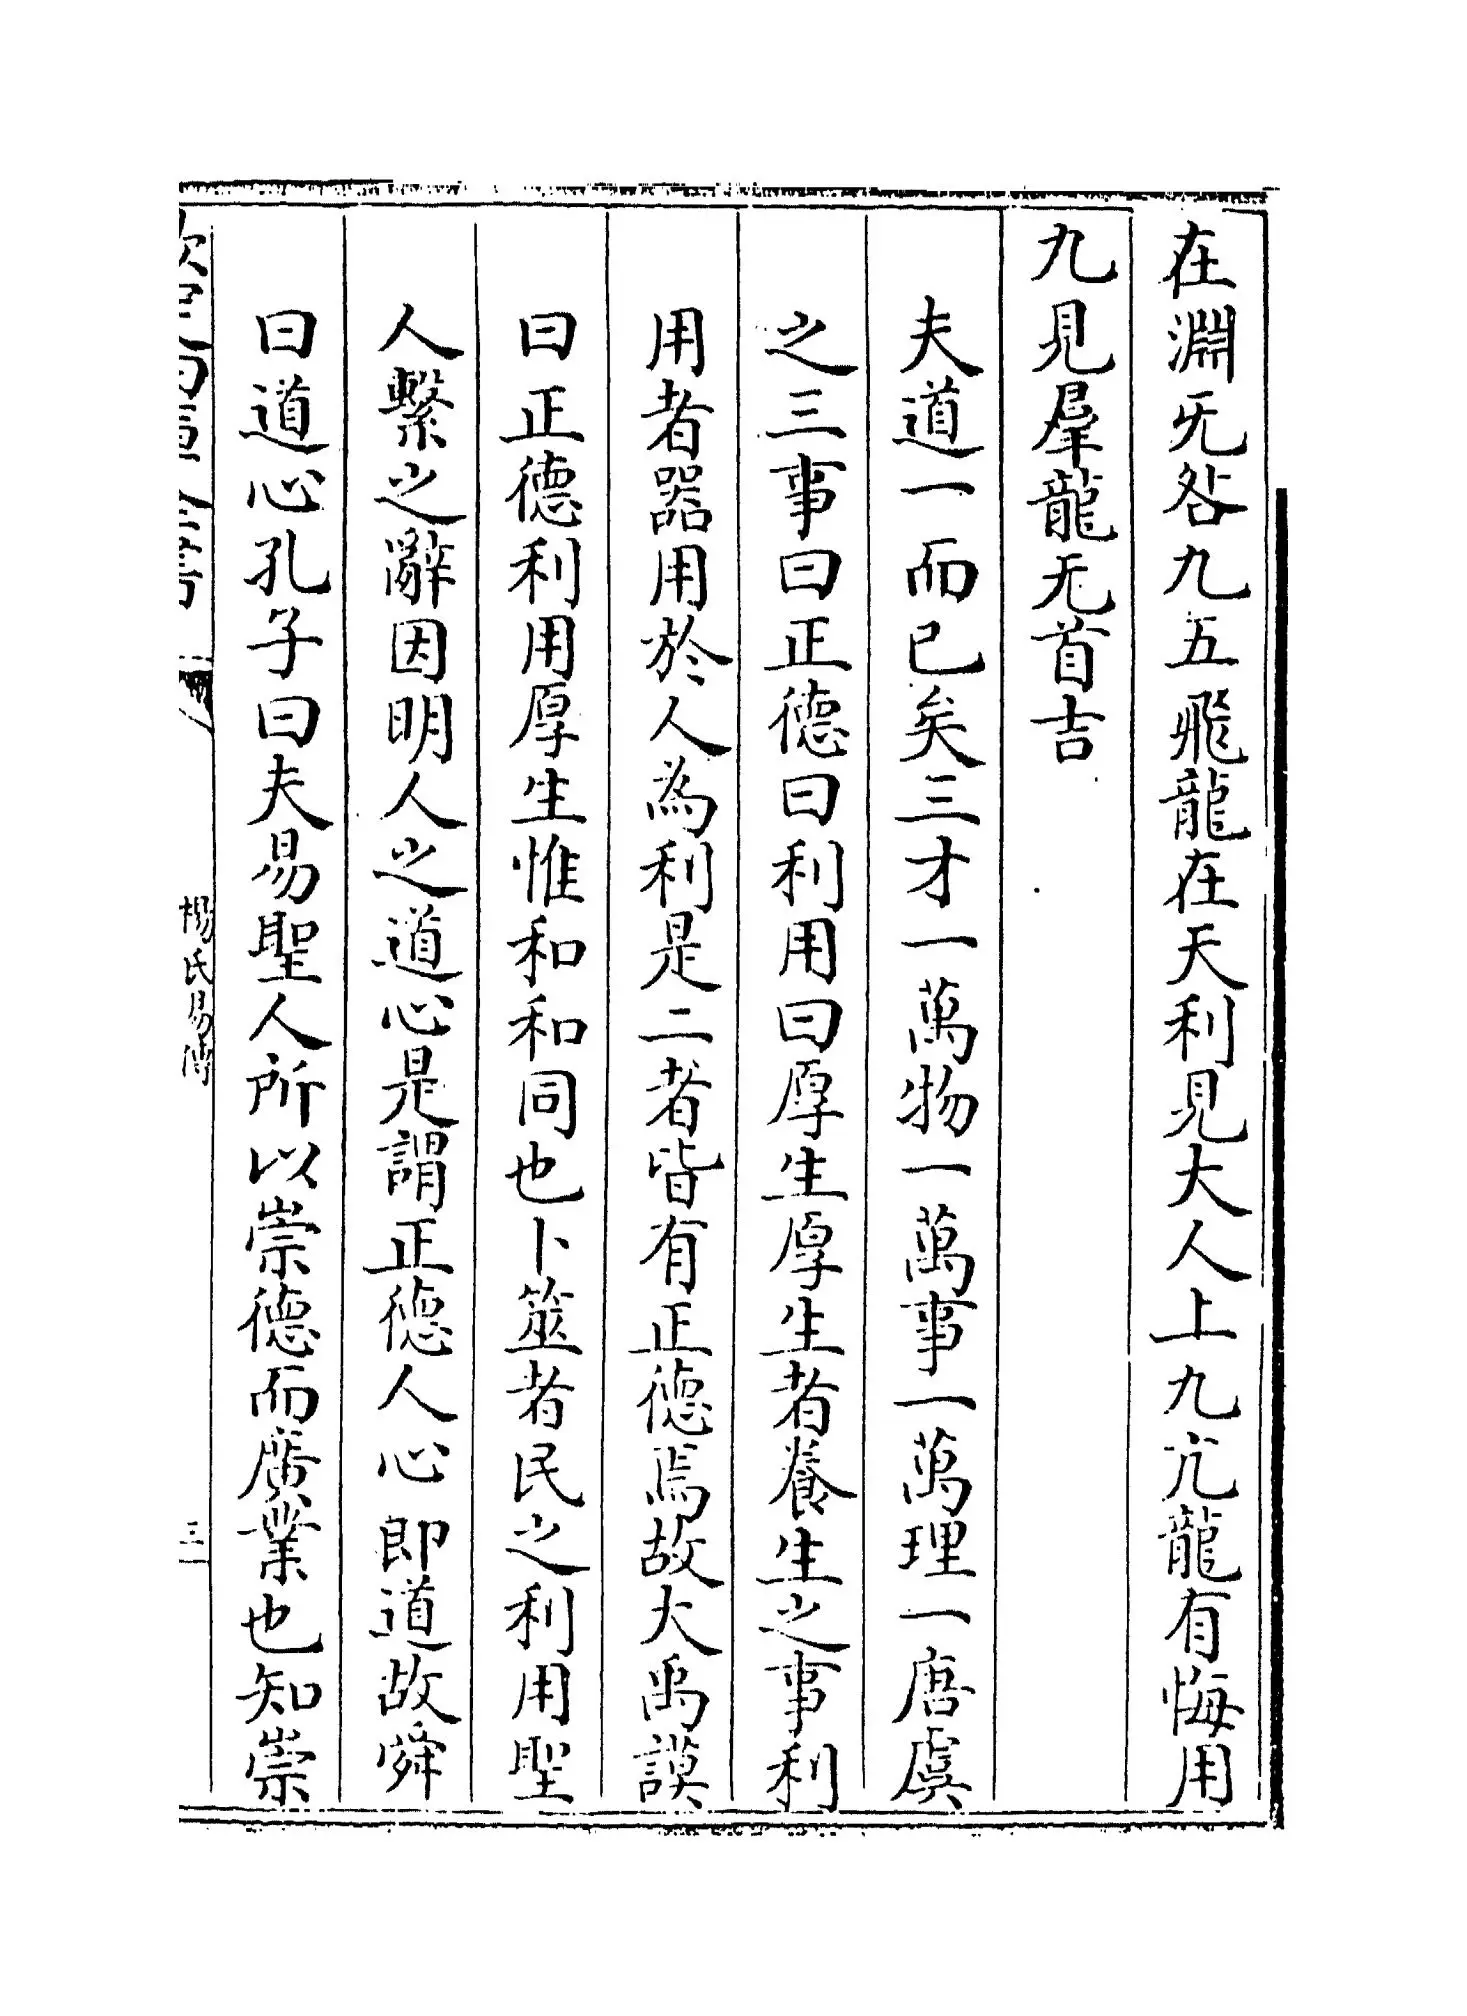 在淵无咎九五飛龍在天利見大人上九亢龍有悔用
九見羣龍无首吉
夫道一而已矣三才一萬物一萬事一萬理一唐虞
之三事曰正德曰利用曰厚生厚生者養生之事利
用者器用於人為利是二者皆有正德焉故大禹謨
曰正德利用厚生惟和和同也卜筮者民之利用聖
人繫之辭因明人之道心是謂正德人心即道故舜
曰道心孔子曰夫易聖人所以崇德而廣業也知崇
楊氏易傳
三